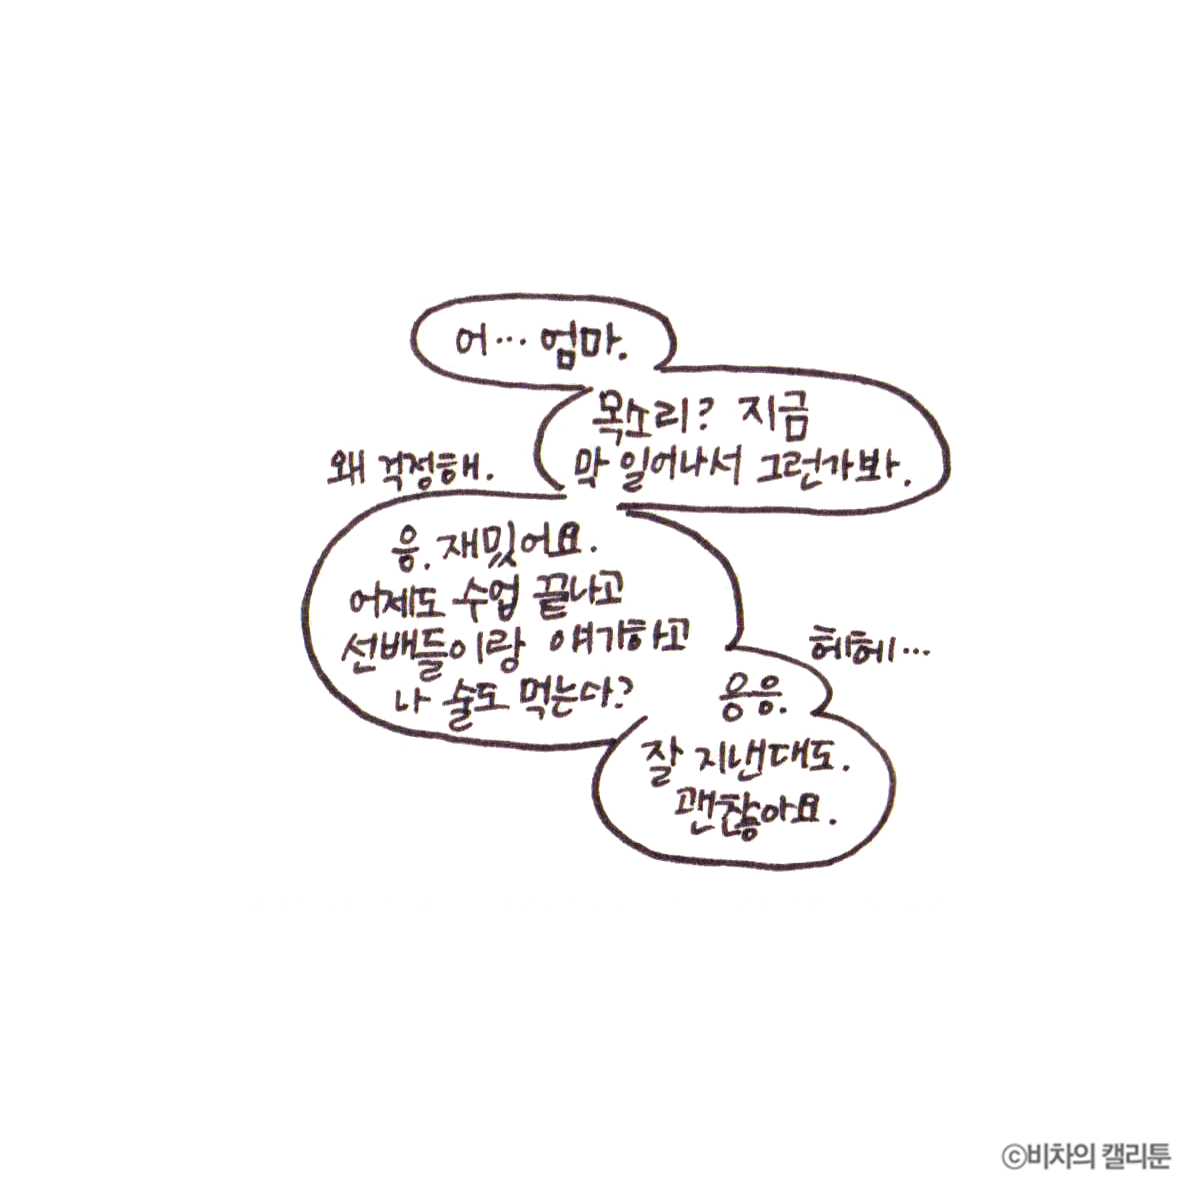 어… 엄마.
목소리? 지금
막 일어나서 그런가봐.
왜 걱정해.
응. 재밌어요.
어제도 수업 끝나고
선배들이랑 얘기하고
나 술도 먹는다?
헤헤…
응응.
잘 지낸대도.
괜찮아요.
©비차의 캘리툰